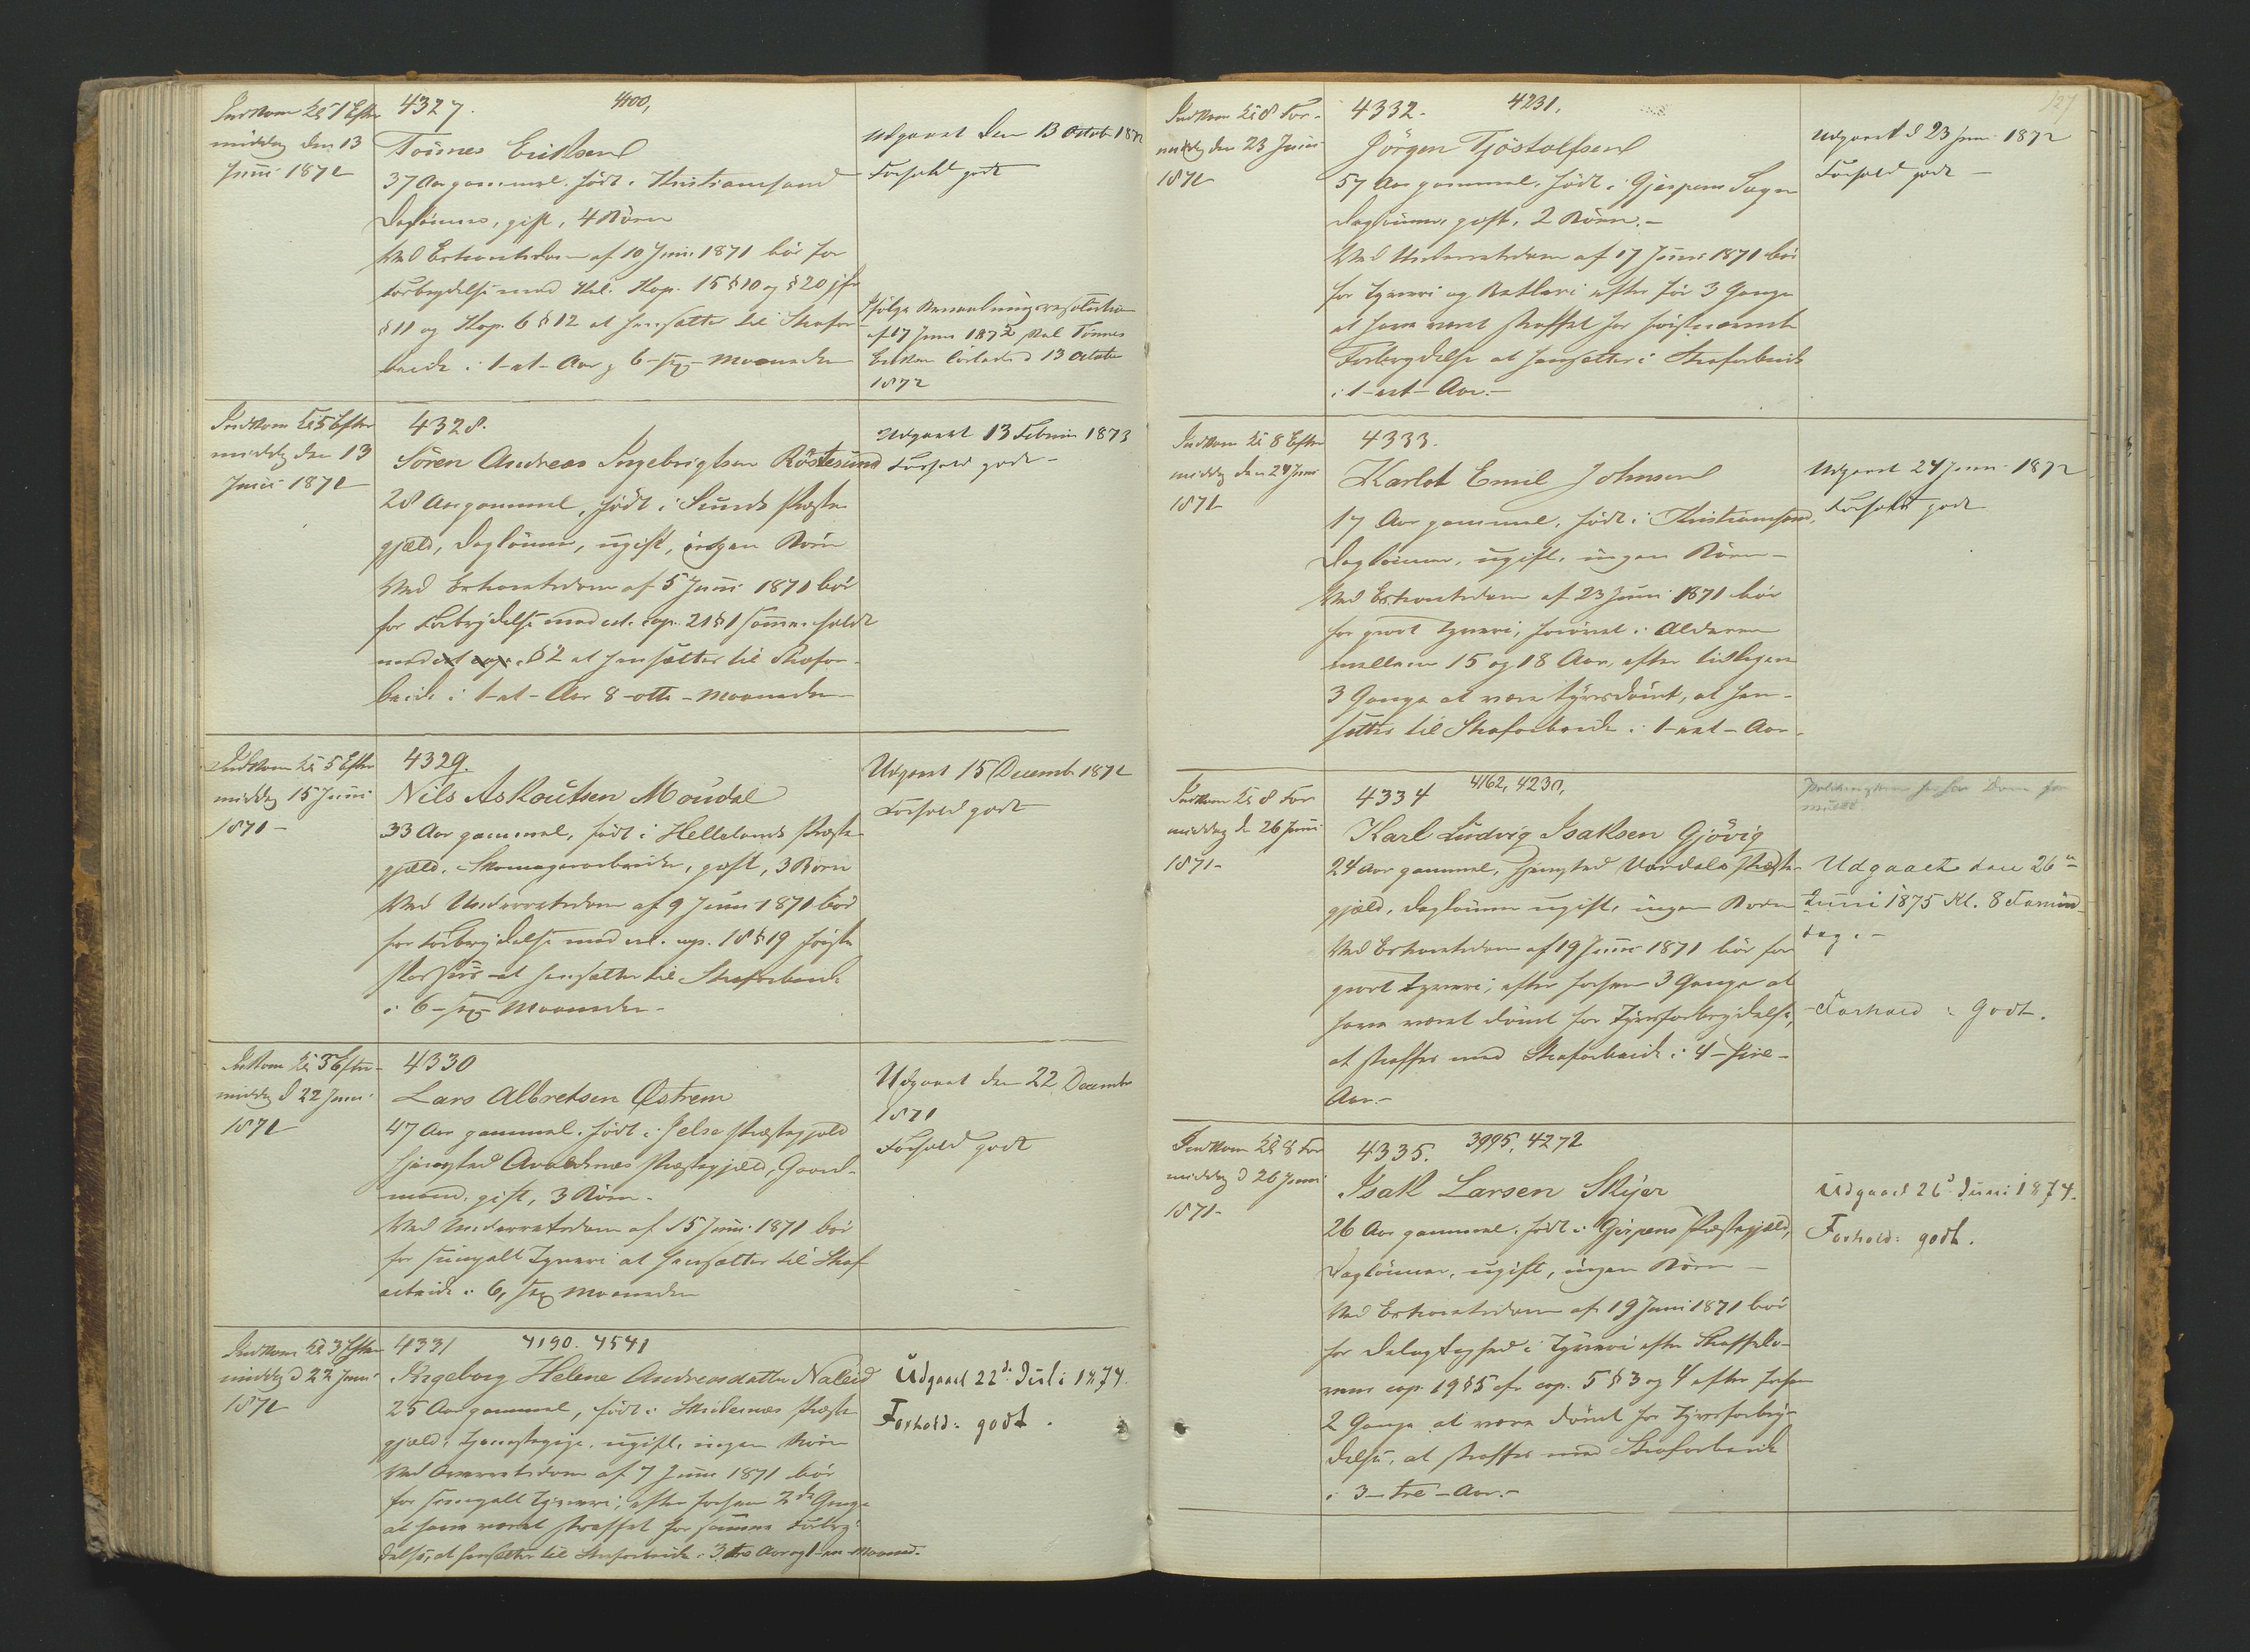 Indkom Kl 7 Efter
middag den 13
Juni 1871
4327. 4100,
Tönnes Eriksen
37 Aar gammel, født i Kristiansand
Daglönner, gift, 4 Börn
Ved Extraretsdom af 10 Juni 1871 bör for
Forbrydelse mod Krl. Kap. 15 § 10 og § 20 jfr
§ 11 og Kap. 6 § 12 at hensættes til Strafar
beide i 1-et-Aar og 6-sex-Maaneder
Udgaaet den 13 Octob 1872
Forhold godt
Ifølge Benaadningsresolution
af 17 Juni 1872 skal Tönnes
Eriksen löslades d 13 October
1872
Indkom Kl 5 Efter
middag den 13
Juni 1871
4328.
Sören Andreas Ingebrigtsen Röstesund
28 Aar gammel, født i Sunds Præste
gjæld, Daglönner, ugift, ingen Börn
Ved Extraretsdom af 5 Juni 1871 bör
for Forbrydelse mod crl. cap. 21 § 1 sammenholdt
med crl cap. § 2 at hensættes til Strafar-
beide i 1-et-Aar 8-otte-Maaneder
Udgaaet 13 Februar 1873
Forhold godt
Indkom Kl 5 Efter
middag 15 Juni
1871-
4329.
Nils Askoutsen Moudal
33 Aar gammel, født i Hellelands Præste
gjæld. Skomagerarbeider, gift, 3 Börn
Ved Underretsdom af 9 Juni 1871 bör
for Forbrydelse mod crl. cap. 18 § 19 første
at hensættes til Strafarbeide
i 6-sex-Maaneder-
Udgaaet 15 Decemb 1871
Forhold godt
Indkom Kl 3 Efter-
middag d 22 Juni
1871
4330
Lars Albretsen Østrem
47 Aar gammel, født i Jelse Præstegjæld
hjemsted Avaldsnæs Præstegjæld, Gaard-
mand, gift, 3 Börn.
Ved Underretsdom af 15 Juni 1871 bör
for simpelt Tyveri at hensættes til Straf
arbeide i 6, sex Maaneder
Udgaaet den 22 Decemb
1871
Forhold godt
Indkom Kl 3 Efter
middag d 22 Juni
1871
4331 4190. 4541
Ingeborg Helene Andreasdatter Naleid
25 Aar gammel, født i Skudesnæs Præste
gjæld, Tjenestepige, ugift, ingen Börn
Ved Overretsdom af 7 Juni 1871 bör
for simpelt Tyveri, efter forhen 2de Gange
at have været straffet for samme Forbry
delse, at hensættes til Strafarbeide i 3 tre Aar og 1-en-Maaned.
Udgaaet 22d Juli 1874.
Forhold: godt.
127
Indkom Kl 8 For-
middag den 23 Juni
1871
4332. 4231.
Jörgen Tjöstolfsen
57 Aar gammel, født i Gjerpens Sogn
Daglönner, gift, 2 Börn.-
Ved Underretsdom af 17 Juni 1871 bör
for Tyveri og Betleri efter för 3 Gange
at have været straffet for førstnævnte
Forbrydelse at hensættes i Strafarbeide
i 1-et-Aar.-
Udgaaet d 23 Juni 1872
Forhold godt -
Indkom Kl 8 Efter
middag den 24 Juni
1871
4333.
Karlot Emil Johnsen
17 Aar gammel, født i Kristiansand,
Daglönner, ugift, ingen Börn-
Ved Extraretsdom af 23 Juni 1871 bör
for grovt Tyveri, forövet i Alderen
mellem 15 og 18 Aar, efter tidligere
3 Gange at være tyvsdömt, at hen-
sættes til Strafarbeide i 1-eet-Aar.
Udgaaet 24 Juni 1872
Forhold godt
Indkom Kl 8 For
middag d 26 Juni
1871-
4334 4162, 4230,
Karl Ludvig Isaksen Gjövig
24 Aar gammel, Hjemsted Vardals Præste-
gjæld, Daglönner ugift, ingen Börn
Ved Extraretsdom af 19 Juni 1871 bör for
grovt Tyveri, efter forhen 3 Gange at
have været dömt for Tyvsforbrydelse,
at straffes med Strafarbeide i 4-fire-
Aar.-
Udgaaet den 26de
Juni 1875 Kl. 8 Formid
dag.-
Forhold: Godt.
Indkom Kl 8 For
middag d 26 Juni
1871-
4335. 3995, 4272
Isak Larsen Skyer
26 Aar gammel, født i Gjerpens Præstegjæld,
Daglönner, ugift, ingen Börn-
Ved Extraretsdom af 19 Juni 1871 bör
for Delagtighed i Tyveri efter Straffelo-
vens cap. 19 § 5 cfr cap. 5 § 3 og 4 efter forhen
2 Gange at være dömt for Tyvsforbry-
delse, at straffes med Strafarbeide
i 3-tre-Aar.-
Udgaaet 26d Juni 1874.
Forhold: godt.